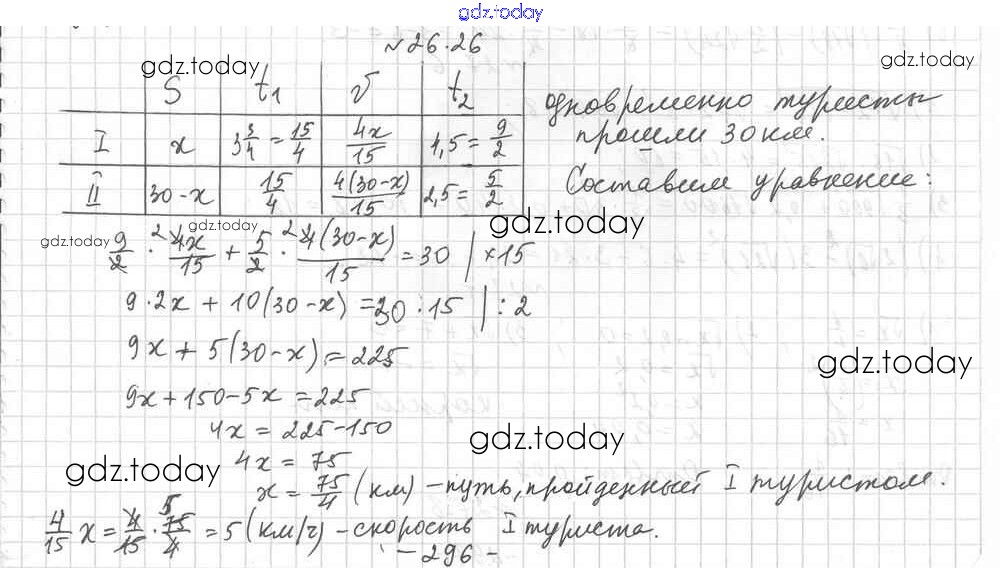 gdz.today
№ 26.26
gdz.today
gdz.today
S t₁ V t₂
I x 3 3/4 = 15/4 4x/15 1,5 = 9/2
II 30-x 15/4 4(30-x)/15 2,5 = 5/2
одновременно туристы
прошли 30 км.
Составим уравнение:
gdz.today
gdz.today
gdz.today
9/2 · ²4x/15 + 5/2 · ²4(30-x)/15 = 30 | ×15
9·2x + 10(30-x) = 30·15 | :2
9x + 5(30-x) = 225
gdz.today
9x+150-5x = 225
4x = 225-150
gdz.today
4x = 75
gdz.today
x = 75/4 (км) – путь, пройденный I туристом.
4/15 x = 4/15 · ⁵75/4 = 5 (км/ч) – скорость I туриста.
- 296 -